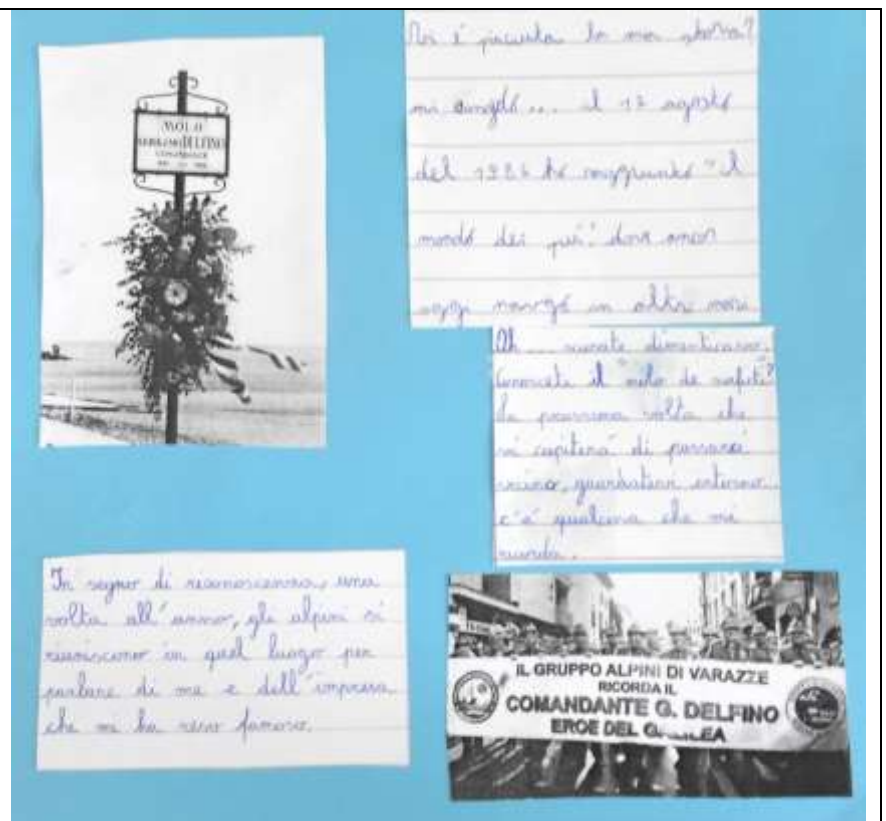 MOLO
DELFINO
COMANDANTE
è piaciuta la mia storia?
mi ... il agosto
del ho raggiunto "il
mondo dei più" dove ancor
oggi navigo in altri mari
Ah ... scusate dimenticavo.
Conoscete il "molo de
La prossima volta che
vi capiterà di passarci
vicino, guardatevi intorno...
c'è qualcosa che mi
ricorda.
In segno di riconoscenza, una
volta all'anno, gli alpini si
riuniscono in quel luogo per
parlare di me e dell'impresa
che mi ha reso famoso.
IL GRUPPO ALPINI DI VARAZZE
RICORDA IL
COMANDANTE G. DELFINO
EROE DEL GALILEA